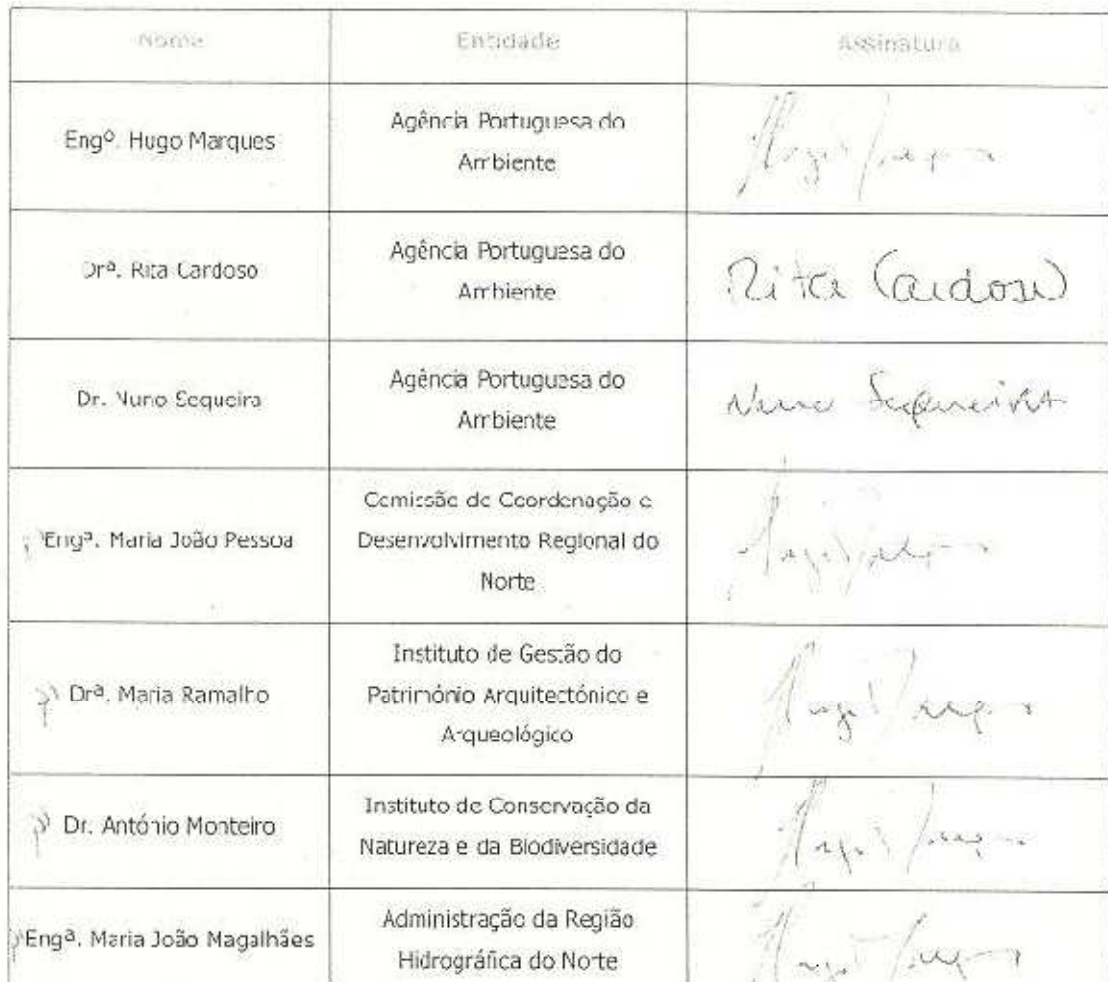 Nome Entidade Assinatura
Engº. Hugo Marques
Agência Portuguesa do
Ambiente
Drª. Rita Cardoso
Agência Portuguesa do
Ambiente
Rita Cardoso
Dr. Nuno Sequeira
Agência Portuguesa do
Ambiente
Nuno Sequeira
Engª. Maria João Pessoa
Comissão de Coordenação e
Desenvolvimento Regional do
Norte
Drª. Maria Ramalho
Instituto de Gestão do
Património Arquitectónico e
Arqueológico
Dr. António Monteiro
Instituto de Conservação da
Natureza e da Biodiversidade
Engª. Maria João Magalhães
Administração da Região
Hidrográfica do Norte